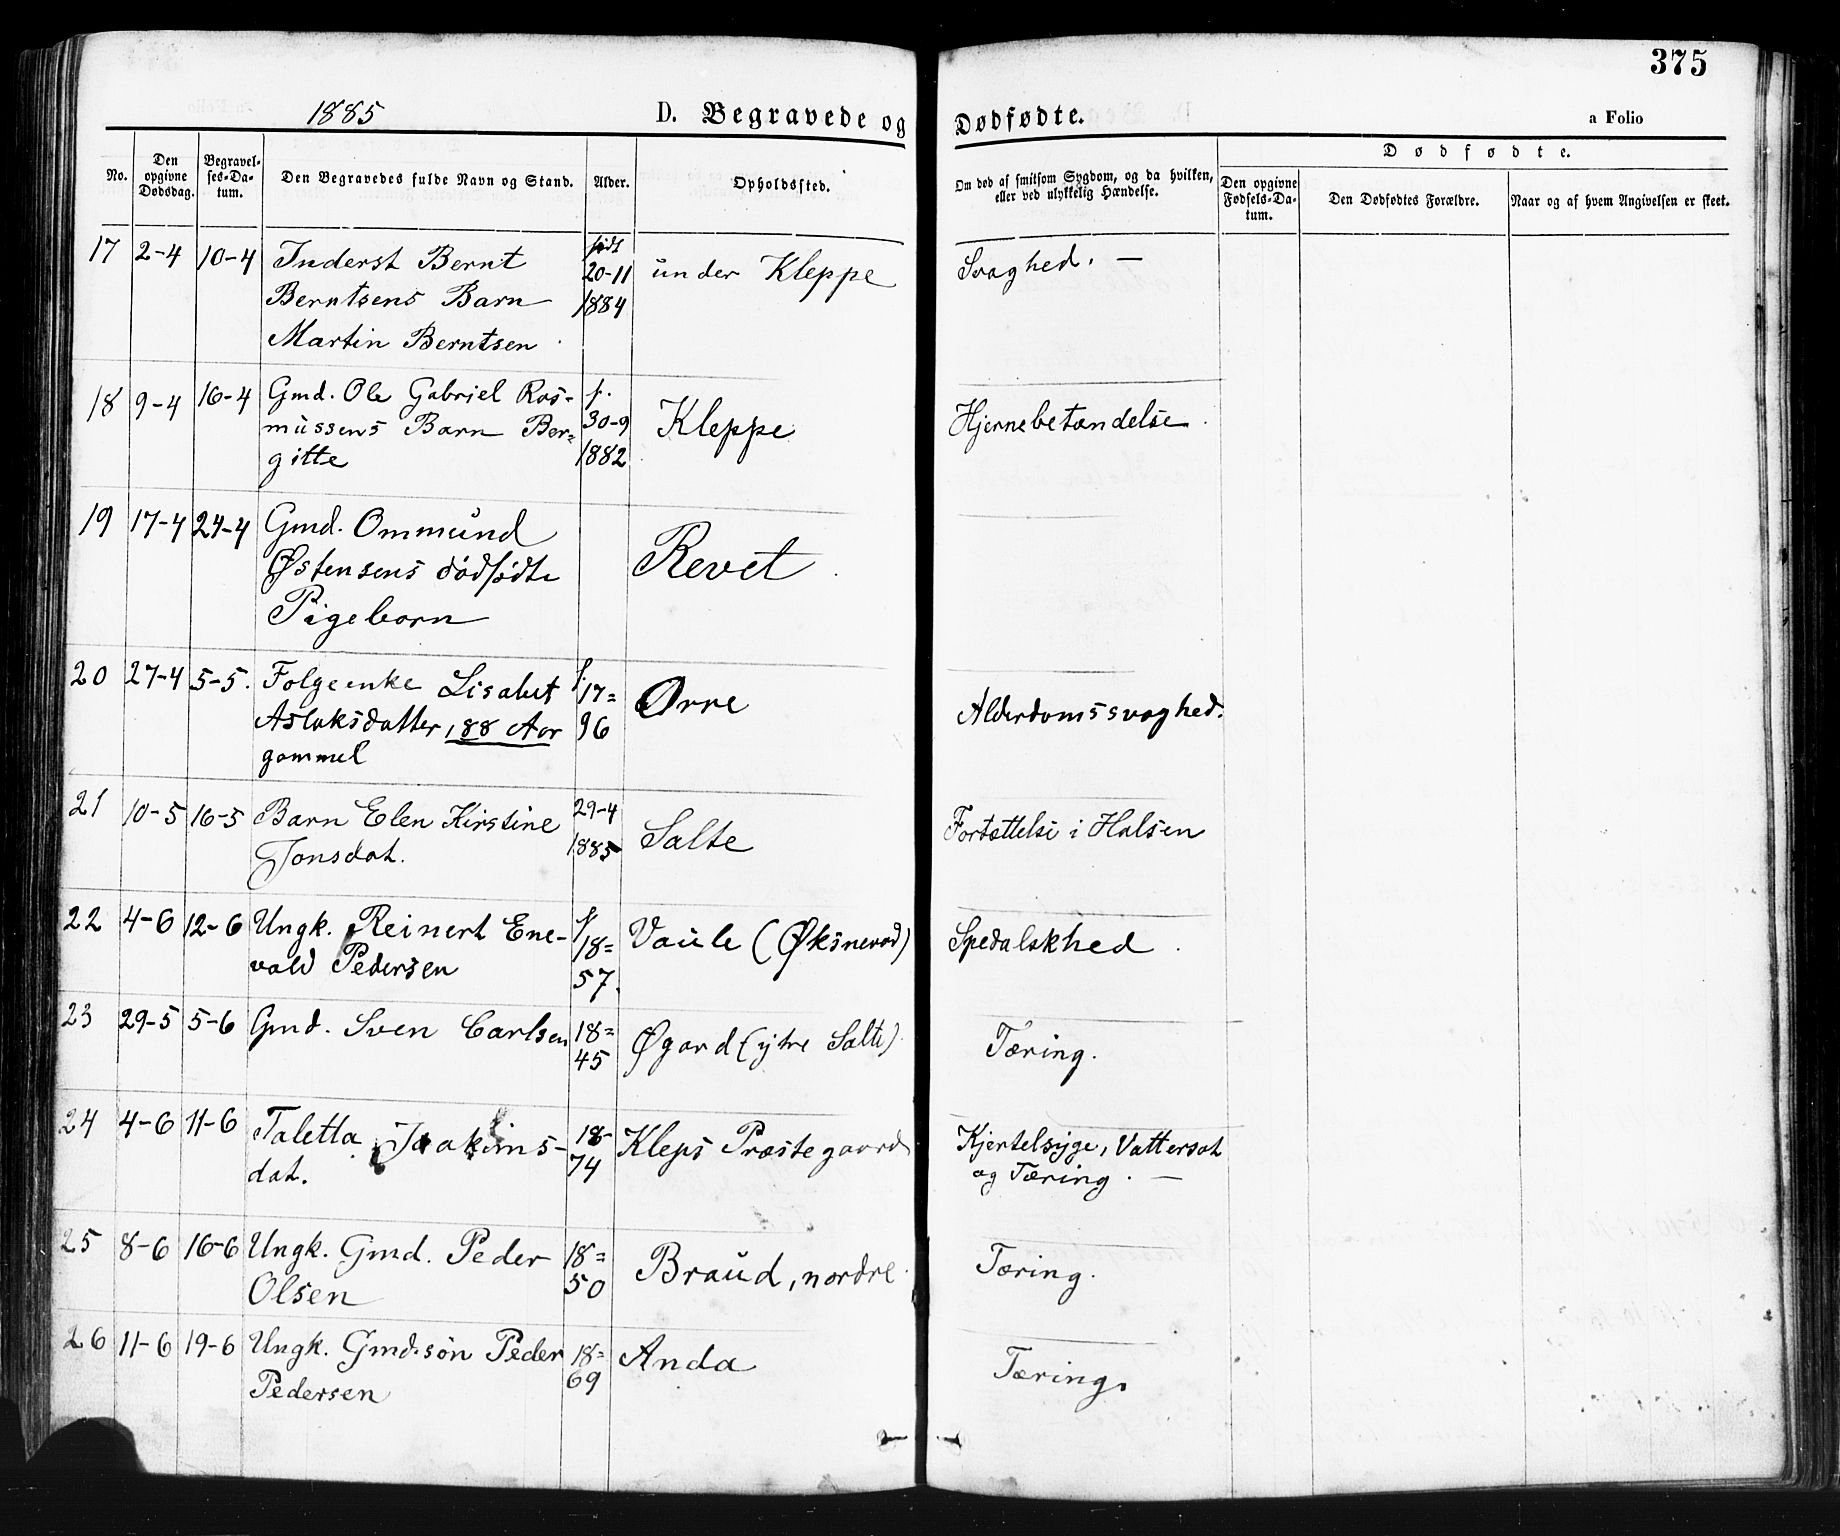 375
1885 D. Begravede og Dødfødte. a Folio
No.
Den opgivne Dødsdag.
Begravel-ses-Da-tum.
Den Begravedes fulde Navn og Stand.
Alder.
Opholdssted.
Om død af smitsom Sygdom, og da hvilken, eller ved ulykkelig Hændelse.
Dødfødte.
Den opgivne Fødsels-Da-tum.
Den Dødfødtes Forældre.
Naar og af hvem Angivelsen er skeet.
17 2-4 10-4 Inderst Bernt født under Kleppe Svaghed. —
Berntsens Barn 20-11
Martin Berntsen 1884
18 9-4 16-4 Gmd. Ole Gabriel Ras- f. Kleppe Hjernebetændelse.
mussens Barn Ber- 30-9
gitte 1882
19 17-4 24-4 Gmd. Ommund Revet
Østensens dødfødte
Pigebarn
20 27-4 5-5. Folgeenke Lisabet f. 17= Ørre Alderdomssvaghed.
Aslaksdatter, 88 Aar 96
gammel
21 10-5 16-5 Barn Elen Kirstine 29-4 Salte Fortættelse i Halsen
Jonsdat. 1885
22 4-6 12-6 Ungk. Reinert Ene- f. 18= Vaule (Øksnevad) Spedalskhed.
vald Pedersen 57.
23 29-5 5-6 Gmd. Sven Carlsen 18= Øgard (ytre Salte) Tæring.
45
24 4-6 11-6 Taletta Joakims- 18- Kleps Præstegaard Kjertelsyge, Vattersot
dat. 74 og Tæring. —
25 8-6 16-6 Ungk. Gmd. Peder 18= Braud, nordre. Tæring.
Olsen 50
26 11-6 19-6 Ungk. Gmdsøn Peder 18= Anda Tæring.
Pedersen 69